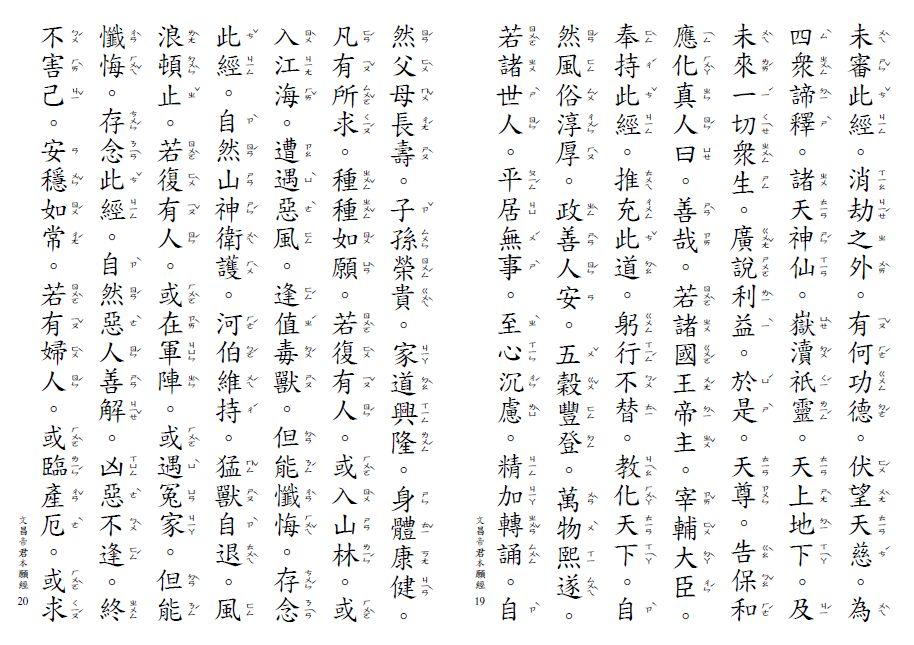 未審此經。消劫之外。有何功德。伏望天慈。為
四眾諦釋。諸天神仙。嶽瀆祇靈。天上地下。及
未來一切眾生。廣說利益。於是。天尊。告保和
應化真人曰。善哉。若諸國王帝主。宰輔大臣。
奉持此經。推充此道。躬行不替。教化天下。自
然風俗淳厚。政善人安。五穀豐登。萬物熙遂。
若諸世人。平居無事。至心沉慮。精加轉誦。自
文昌帝君本願經 19
然父母長壽。子孫榮貴。家道興隆。身體康健。
凡有所求。種種如願。若復有人。或入山林。或
入江海。遭遇惡風。逢值毒獸。但能懺悔。存念
此經。自然山神衛護。河伯維持。猛獸自退。風
浪頓止。若復有人。或在軍陣。或遇冤家。但能
懺悔。存念此經。自然惡人善解。凶惡不逢。終
不害己。安穩如常。若有婦人。或臨產厄。或求
文昌帝君本願經 20